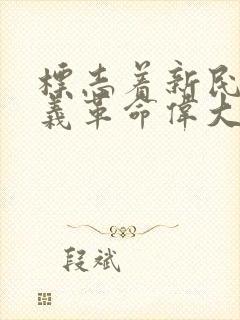 標志着新民
義革命偉大
段斌